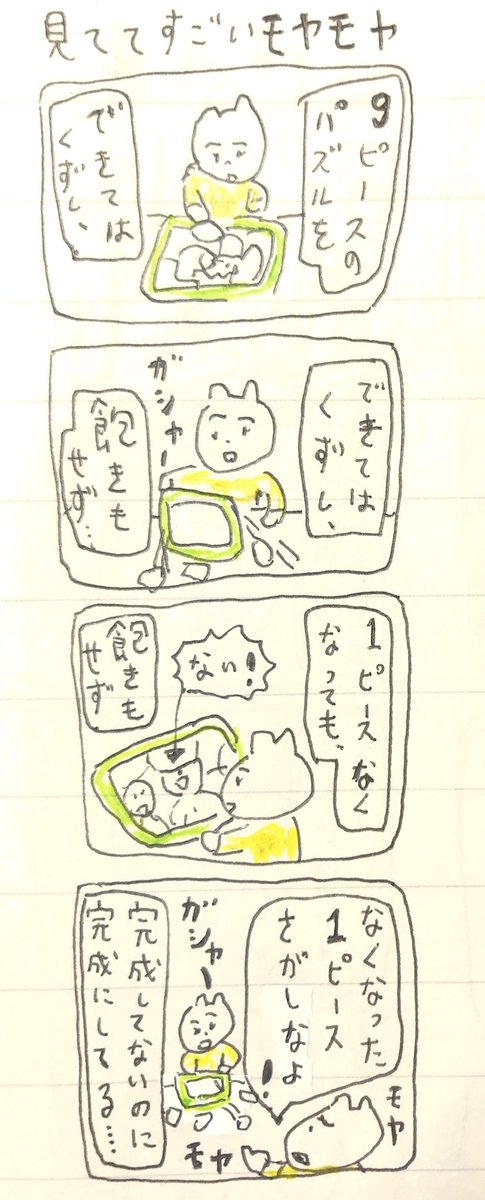 見ててすごいモヤモヤ
9ピースの
パズルを
できては
くずし、
できては
くずし、
ガシャー
飽きも
せず…
1ピースなく
なっても、
ない!
飽きも
せず
なくなった
1ピース
さがしなよ
!
モヤ
ガシャー
モヤ
完成してないのに
完成にしてる…